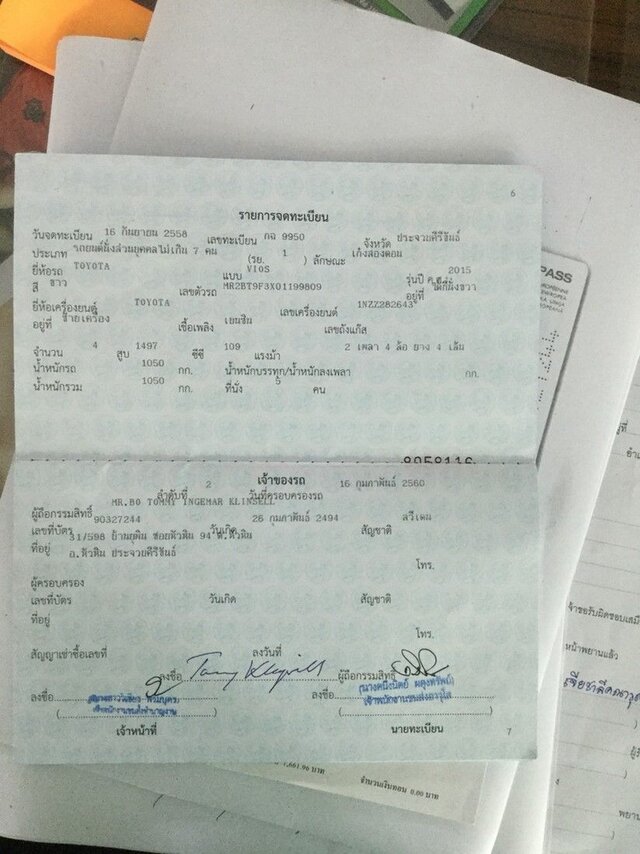 6
รายการจดทะเบียน
วันจดทะเบียน 16 กันยายน 2558 เลขทะเบียน กฉ 9950 จังหวัด ประจวบคีรีขันธ์
ประเภท รถยนต์นั่งส่วนบุคคลไม่เกิน 7 คน (รย. 1 ) ลักษณะ เก๋งสองตอน
ยี่ห้อรถ TOYOTA แบบ VIOS รุ่นปี ค.ศ. 2015
สี ขาว เลขตัวรถ MR2BT9F3X01199809 อยู่ที่ ใต้ที่นั่งขวา
ยี่ห้อเครื่องยนต์ TOYOTA เลขเครื่องยนต์ 1NZZ282643
อยู่ที่ ซ้ายเครื่อง เชื้อเพลิง เบนซิน เลขถังแก๊ส
จำนวน 4 สูบ 1497 ซีซี 109 แรงม้า 2 เพลา 4 ล้อ ยาง 4 เส้น
น้ำหนักรถ 1050 กก. น้ำหนักบรรทุก/น้ำหนักลงเพลา กก.
น้ำหนักรวม 1050 กก. ที่นั่ง 5 คน
8058116
เจ้าของรถ
ลำดับที่ 2 วันที่ครอบครองรถ 16 กุมภาพันธ์ 2560
ผู้ถือกรรมสิทธิ์ MR.BO TOMMY INGEMAR KLINSELL
เลขที่บัตร 90327244 วันเกิด 26 กุมภาพันธ์ 2494 สัญชาติ สวีเดน
ที่อยู่ 31/598 ซอยหัวหิน 94 ต.หัวหิน
อ.หัวหิน ประจวบคีรีขันธ์
โทร.
ผู้ครอบครอง
เลขที่บัตร วันเกิด สัญชาติ
ที่อยู่
โทร.
สัญญาเช่าซื้อเลขที่ ลงวันที่
ลงชื่อ ผู้ถือกรรมสิทธิ์
ลงชื่อ ลงชื่อ
เจ้าพนักงานขนส่งชำนาญงาน เจ้าพนักงานขนส่งอาวุโส
เจ้าหน้าที่ นายทะเบียน
7
PASS
1,661.96 บาท
จำนวนเงินทอน 0.00 บาท
หน้าพยานแล้ว